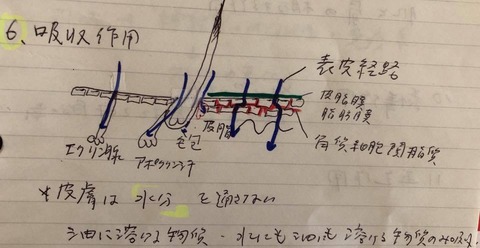 6、吸収作用
表皮経路
皮脂膜
脂肪膜
角質細胞間脂質
皮脂
毛包
エクリン腺
アポクリン汗
*皮膚は 水分 を通さない
油に溶ける物質・水にも油も溶ける物質のみ吸収